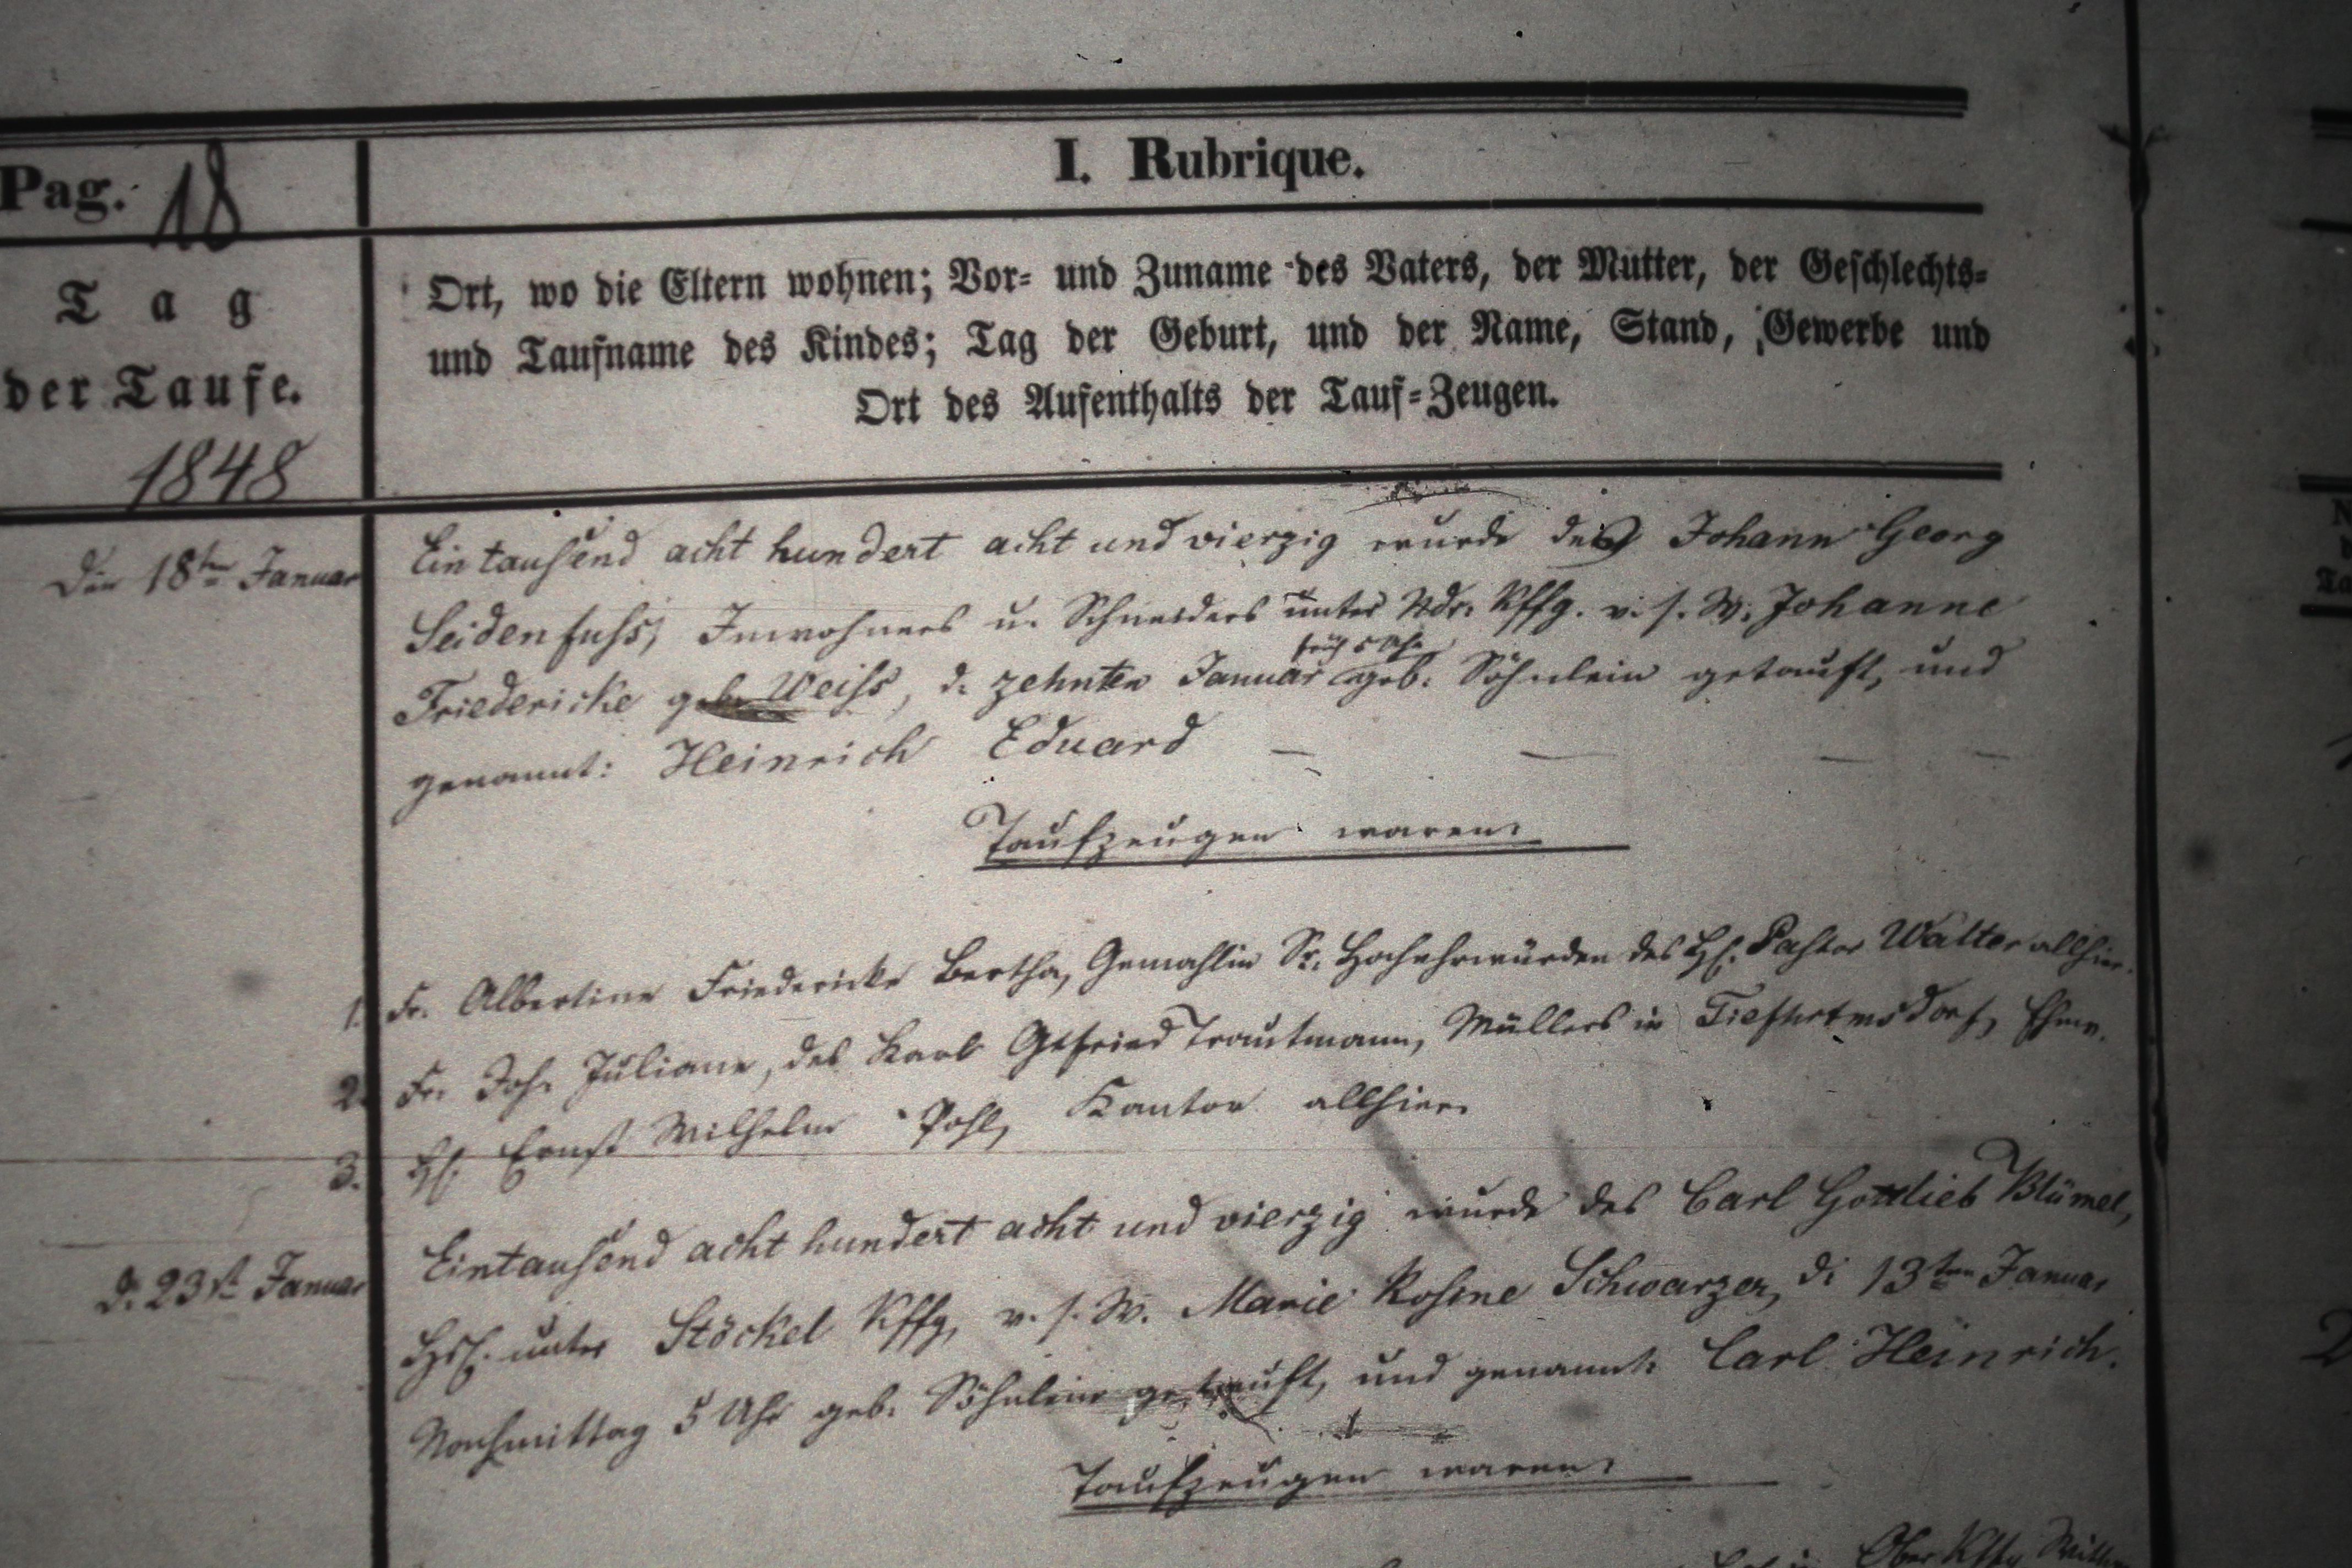 Pag. 18
I. Rubrique.
Tag
der Taufe.
1848
Ort, wo die Eltern wohnen; Vor- und Zuname des Vaters, der Mutter, der Geschlechts-
und Taufname des Kindes; Tag der Geburt, und der Name, Stand, Gewerbe und
Ort des Aufenthalts der Tauf-Zeugen.
Den 18ten Januar
Ein tausend acht hundert acht und vierzig wurde des Johann Georg
Seidenfuss, Inwohners u. Schneiders unter Ndr. Kffg. v. s. W. Johanne
früh 5 Uhr
Friedericke geb. Weiss, d. zehnten Januar geb. Söhnlein getauft, und
genannt: Heinrich Eduard
Taufzeugen waren:
1. Fr. Albertine Friedericke Bertha, Gemahlin Sr. Hochehrwürden des H. Pastor Walter allhier.
2. Fr. Joh. Juliane, des Karl Gtfried Trautmann, Müllers in Tiefhrtmsdorf, Ehew.
3. H. Ernst Wilhelm Pohl, Kantor allhier.
d. 23st Januar
Eintausend acht hundert acht und vierzig wurde des Carl Gottlieb Blümel,
unter Stöckel Kffg, v. s. W. Marie Rosine Schwarzer, d. 13ten Januar
Nachmittag 5 Uhr geb. Söhnlein getauft, und genannt: Carl Heinrich.
Taufzeugen waren:
Ober Kffg